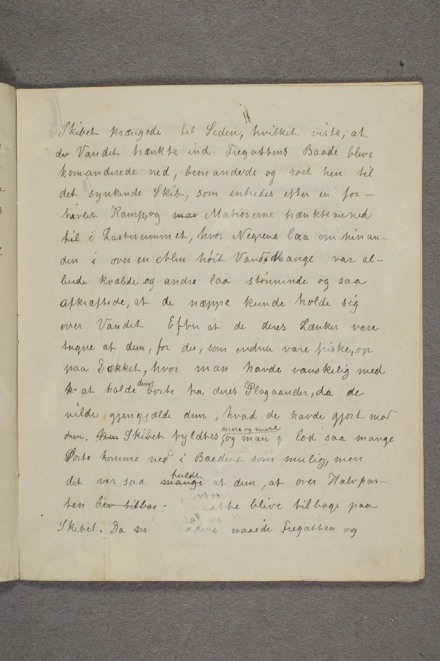 Skibet krængede til Siden, hvilket viste, at
der Vandet trænkte ind. Fregattens Baade bleve
komanderede ned, bemandede og roede hen til
det synkende Skib, som entredes efter en for-
tvivlet Kamp, og Matroserne trænkte ned
til i Lasterummet, hvor Negrene laa om hinan-
den i over en Alen höit Vand. Mange var al-
lerede kvalde og andre laa stönnende og saa
afkræftede, at de næppe kunde holde sig
over Vandet. Efter at de deres Lænker vare
tagne af dem, for de, som endnu vare friske, op
paa Dækket, hvor man havde vanskelig med
at holde dem borte fra deres Plageaander, da de
vilde gjengjælde dem, hvad de havde gjort mod
dem. Skibet fyldtes mere og mere og man lod saa mange
Porte komme ned i Baadene som mulig, men
det var saa fuldt af dem, at over Halvpar-
ten blev tilbage. atte blive tilbage paa
Skibet. Da maatte Fregatten og